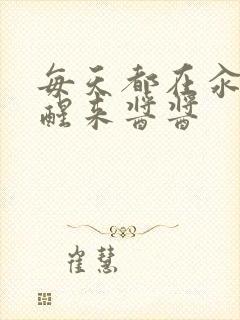 每天都在
醒来酱酱
崔慧